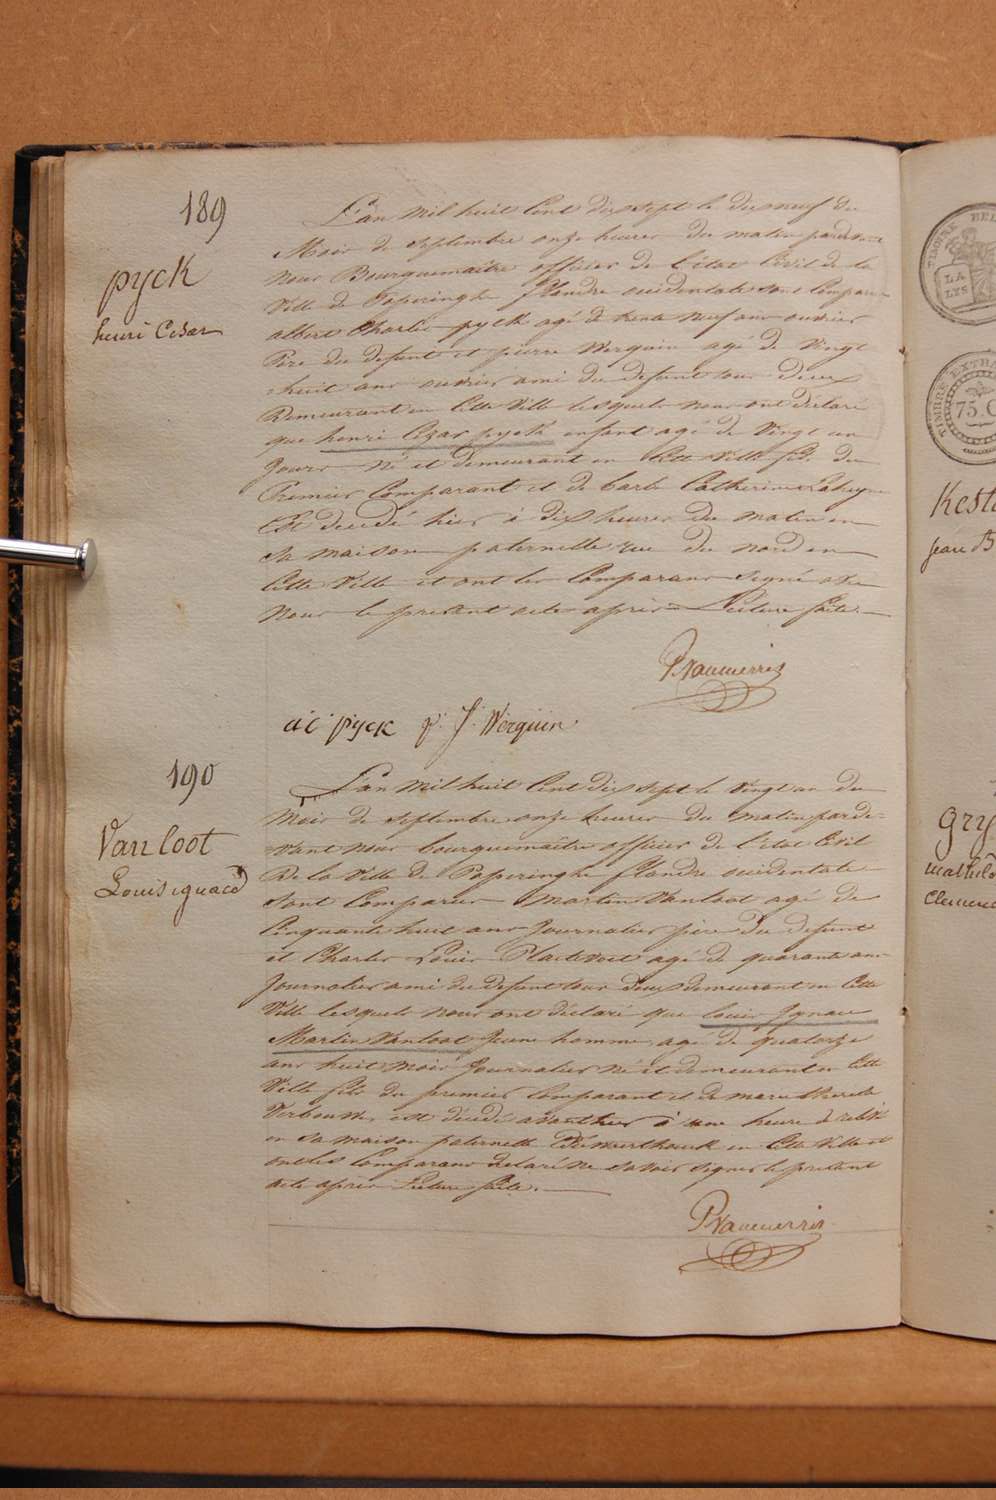 189
pyck
henri Cesar
L'an mil huit Cent dix sept le dix neuf du
Mois de Septembre onze heures du matin pardevant
nous Bourguemaître officier de l'état Civil de la
Ville de Poperinghe flandre occidentale sont Comparu
albert Charles pyck agé de trente neuf ans ouvrier
Père du defunt et pierre Werquin agé de Vingt
huit ans ouvrier ami du defunt tous deux
Demeurant en Cette Ville lesquels nous ont déclaré
que henri Cezar pyck enfant agé de Vingt un
Jours né et demeurant en Cette Ville fils du
Premier Comparant et de barbe Catherine
Est decedé hier à dix heures du matin en
Sa maison paternelle rue du nord en
Cette Ville et ont les Comparans Signé avec
Nous le present acte après Lecture faite.
a c pyck p. J. Werquin
190
Van loot
Louis ignace
L'an mil huit Cent dix sept le Vingt un du
Mois de Septembre onze heures du matin parde=
=vant nous bourguemaître officier de l'état Civil
De la Ville de Poperinghe flandre occidentale
Sont Comparus Martin Vanloot agé de
Cinquante huit ans Journalier père du defunt
et Charles Louis agé de quarante ans
Journalier ami du defunt tous deux demeurant en Cette
Ville lesquels nous ont déclaré que louis Ignace
Martin Vanloot Jeune homme, agé de quatorze
ans huit mois Journalier né et demeurant en Cette
Ville fils du premier Comparant et de marie therese
est décedé avanthier à une heure de
en Sa maison paternelle en Cette Ville et
ont les Comparans declaré ne Savoir Signer le present
acte après Lecture faite.
TIMBRE
LA
LYS
TIMBRE EXTRA
75. C
Jean B
mathild